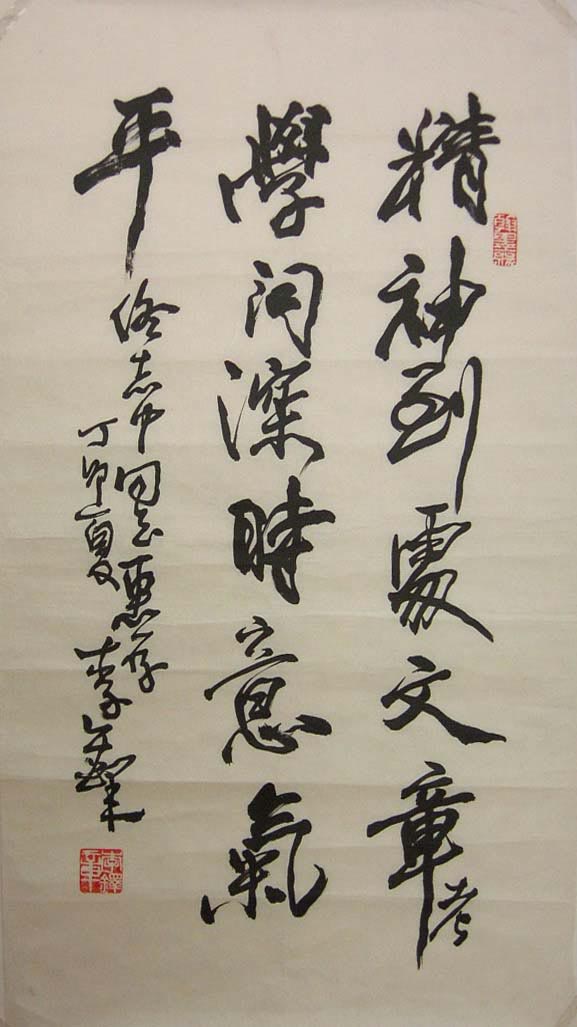 精神到處文章老
學問深時意氣
平
志中同志惠存
丁卯夏
李鐸